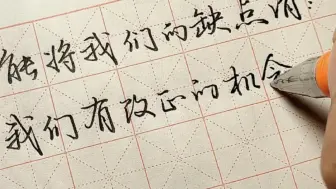 能将我们的缺点请:
我们有改正的机会